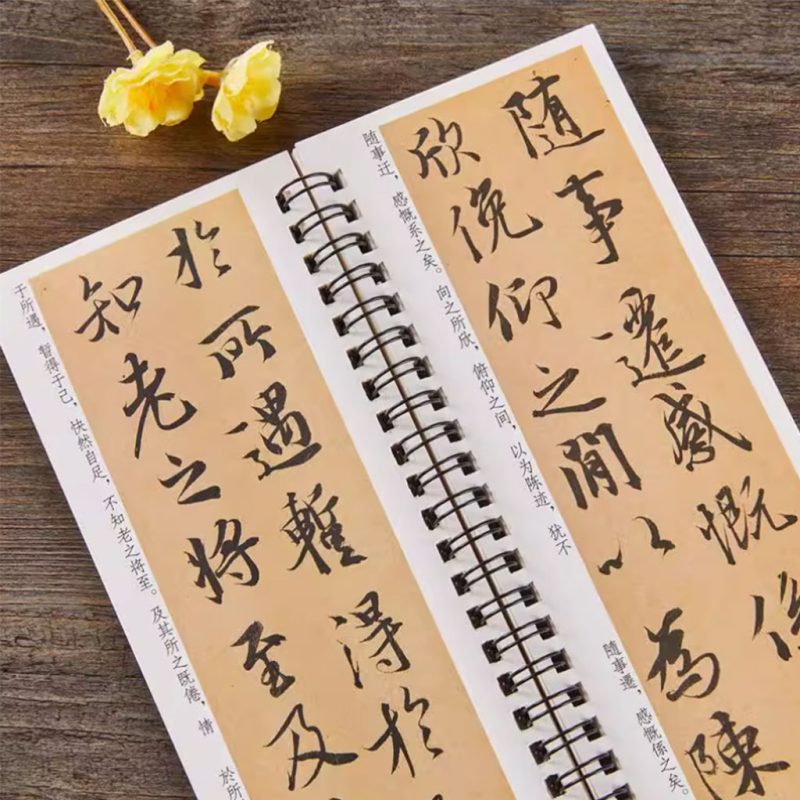 隨事遷感慨係
欣俛仰之間以為陳
随事迁，感慨系之矣。向之所欣，俯仰之间，以为陈迹，犹不
隨事遷，感慨係之矣。
於所遇蹔得於
知老之將至及
于所遇，暂得于己，快然自足，不知老之将至。及其所之既倦，情
於所